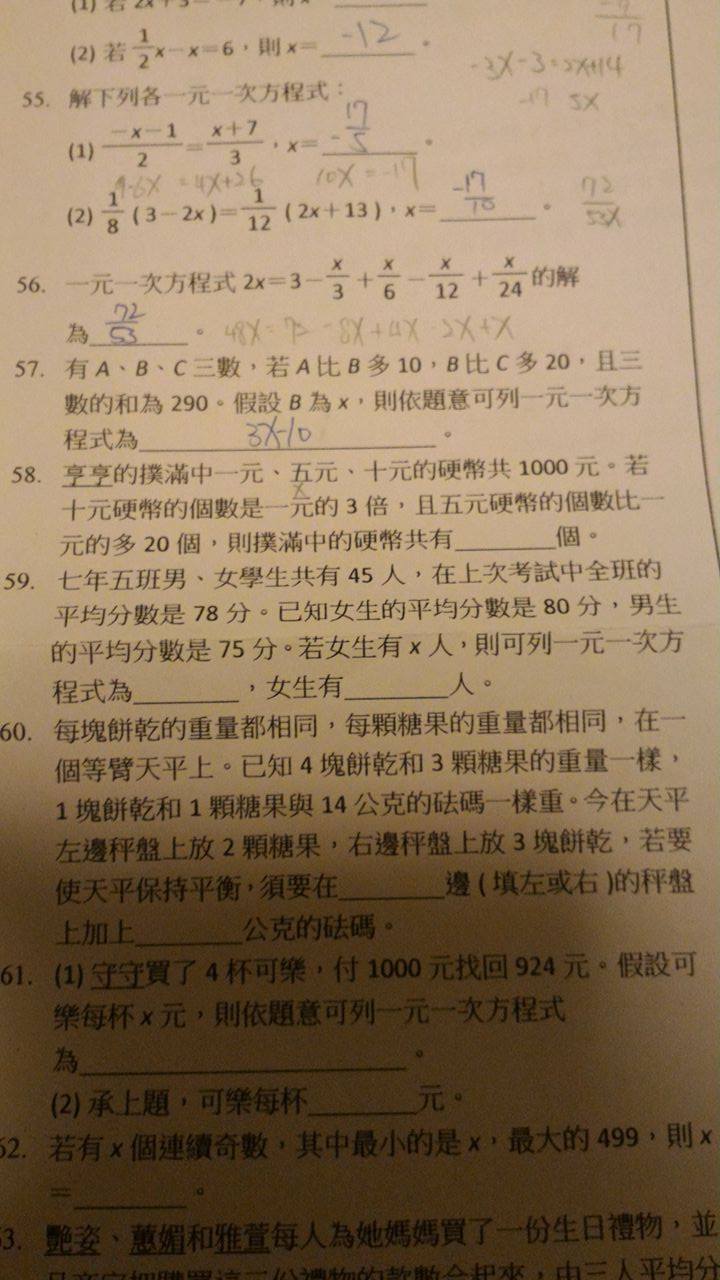 (2) 若 1/2 x－x＝6，則 x＝ -12 。
-3X-3=2X+14
-17 5X
55. 解下列各一元一次方程式：
(1) －x－1/2 ＝ x＋7/3 ，x＝ -17/5 。
9-6X =4X+26 10X = -17
(2) 1/8 (3－2x)＝1/12 (2x＋13)，x＝ -17/10 。 72/53X
56. 一元一次方程式 2x＝3－x/3＋x/6－x/12＋x/24 的解
為 72/53 。 48X=72-8X+4X-2X+X
57. 有 A、B、C 三數，若 A 比 B 多 10，B 比 C 多 20，且三
數的和為 290。假設 B 為 x，則依題意可列一元一次方
程式為 3X-10 。
58. 亨亨的撲滿中一元、五元、十元的硬幣共 1000 元。若
x
十元硬幣的個數是一元的 3 倍，且五元硬幣的個數比一
元的多 20 個，則撲滿中的硬幣共有________個。
59. 七年五班男、女學生共有 45 人，在上次考試中全班的
平均分數是 78 分。已知女生的平均分數是 80 分，男生
的平均分數是 75 分。若女生有 x 人，則可列一元一次方
程式為________，女生有________人。
60. 每塊餅乾的重量都相同，每顆糖果的重量都相同，在一
個等臂天平上。已知 4 塊餅乾和 3 顆糖果的重量一樣，
1 塊餅乾和 1 顆糖果與 14 公克的砝碼一樣重。今在天平
左邊秤盤上放 2 顆糖果，右邊秤盤上放 3 塊餅乾，若要
使天平保持平衡，須要在________邊 (填左或右)的秤盤
上加上________公克的砝碼。
61. (1) 守守買了 4 杯可樂，付 1000 元找回 924 元。假設可
樂每杯 x 元，則依題意可列一元一次方程式
為________________________。
(2) 承上題，可樂每杯________元。
62. 若有 x 個連續奇數，其中最小的是 x，最大的 499，則 x
＝________。
63. 艷姿、蕙媚和雅萱每人為她媽媽買了一份生日禮物，並